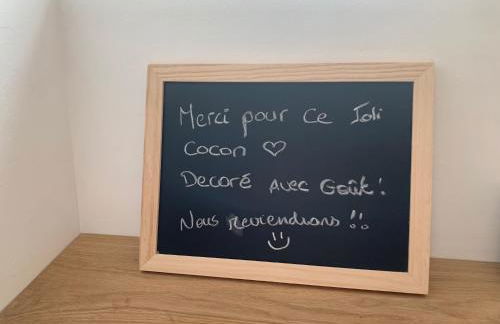 Merci pour ce Joli
Cocon ♡
Decoré avec Goût!
Nous reviendrons !!